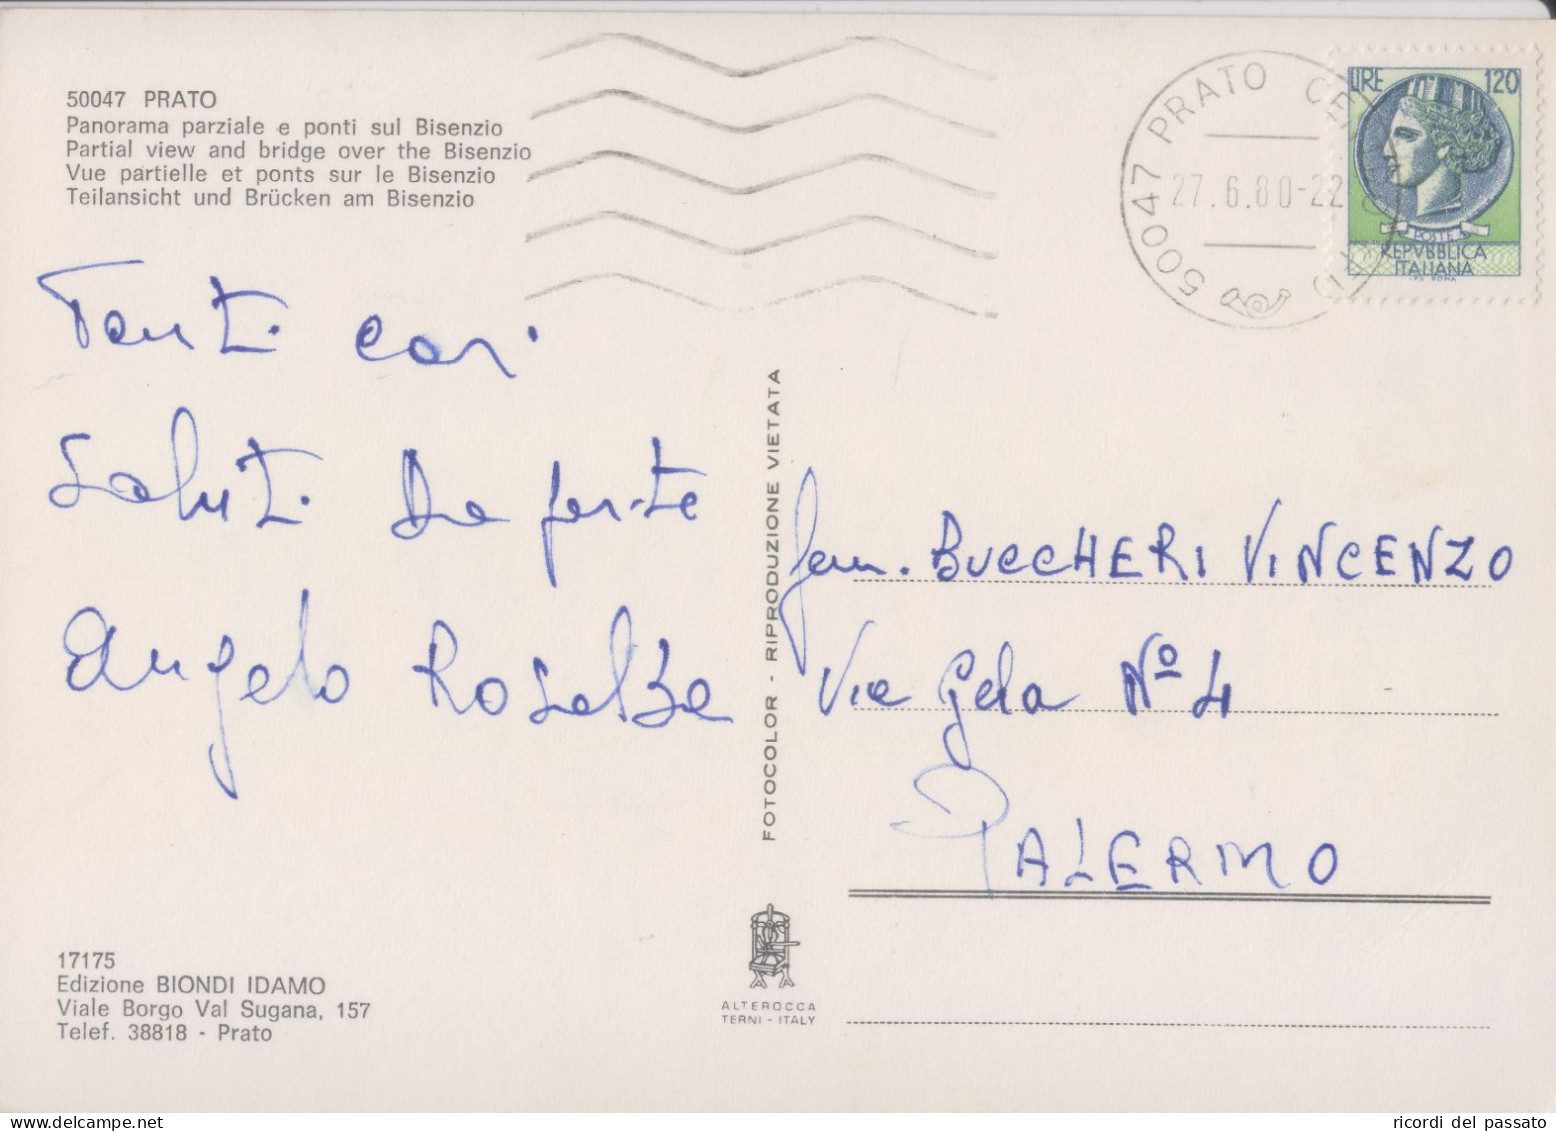 50047 PRATO
Panorama parziale e ponti sul Bisenzio
Partial view and bridge over the Bisenzio
Vue partielle et ponts sur le Bisenzio
Teilansicht und Brücken am Bisenzio
50047 PRATO
27.6.80-22
LIRE 120
POSTE
REPVBBLICA
ITALIANA
I.P.S. ROMA
Tanti cari
saluti da parte
Angelo Rosalba
FOTOCOLOR - RIPRODUZIONE VIETATA
Fam. BUCCHERI VINCENZO
Via Gela Nº 4
PALERMO
17175
Edizione BIONDI IDAMO
Viale Borgo Val Sugana, 157
Telef. 38818 - Prato
ALTEROCCA
TERNI - ITALY
ricordi del passato